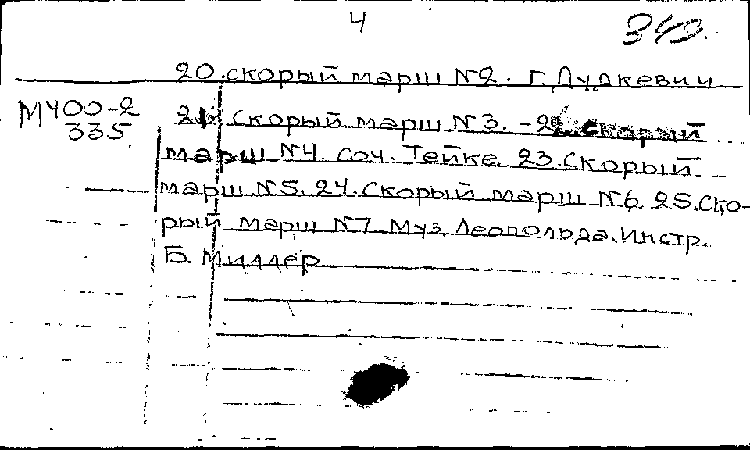 4
340.
20. скорый марш №2. Г. Дудкевич
М400-2
335
21. Скорый марш №3. - 22. Скорый
марш №4 соч. Тейке. 23. Скорый
марш №5. 24. Скорый марш №6. 25. Ско-
рый марш №7. Муз. Леопольда. Инстр.
Б. Миллер